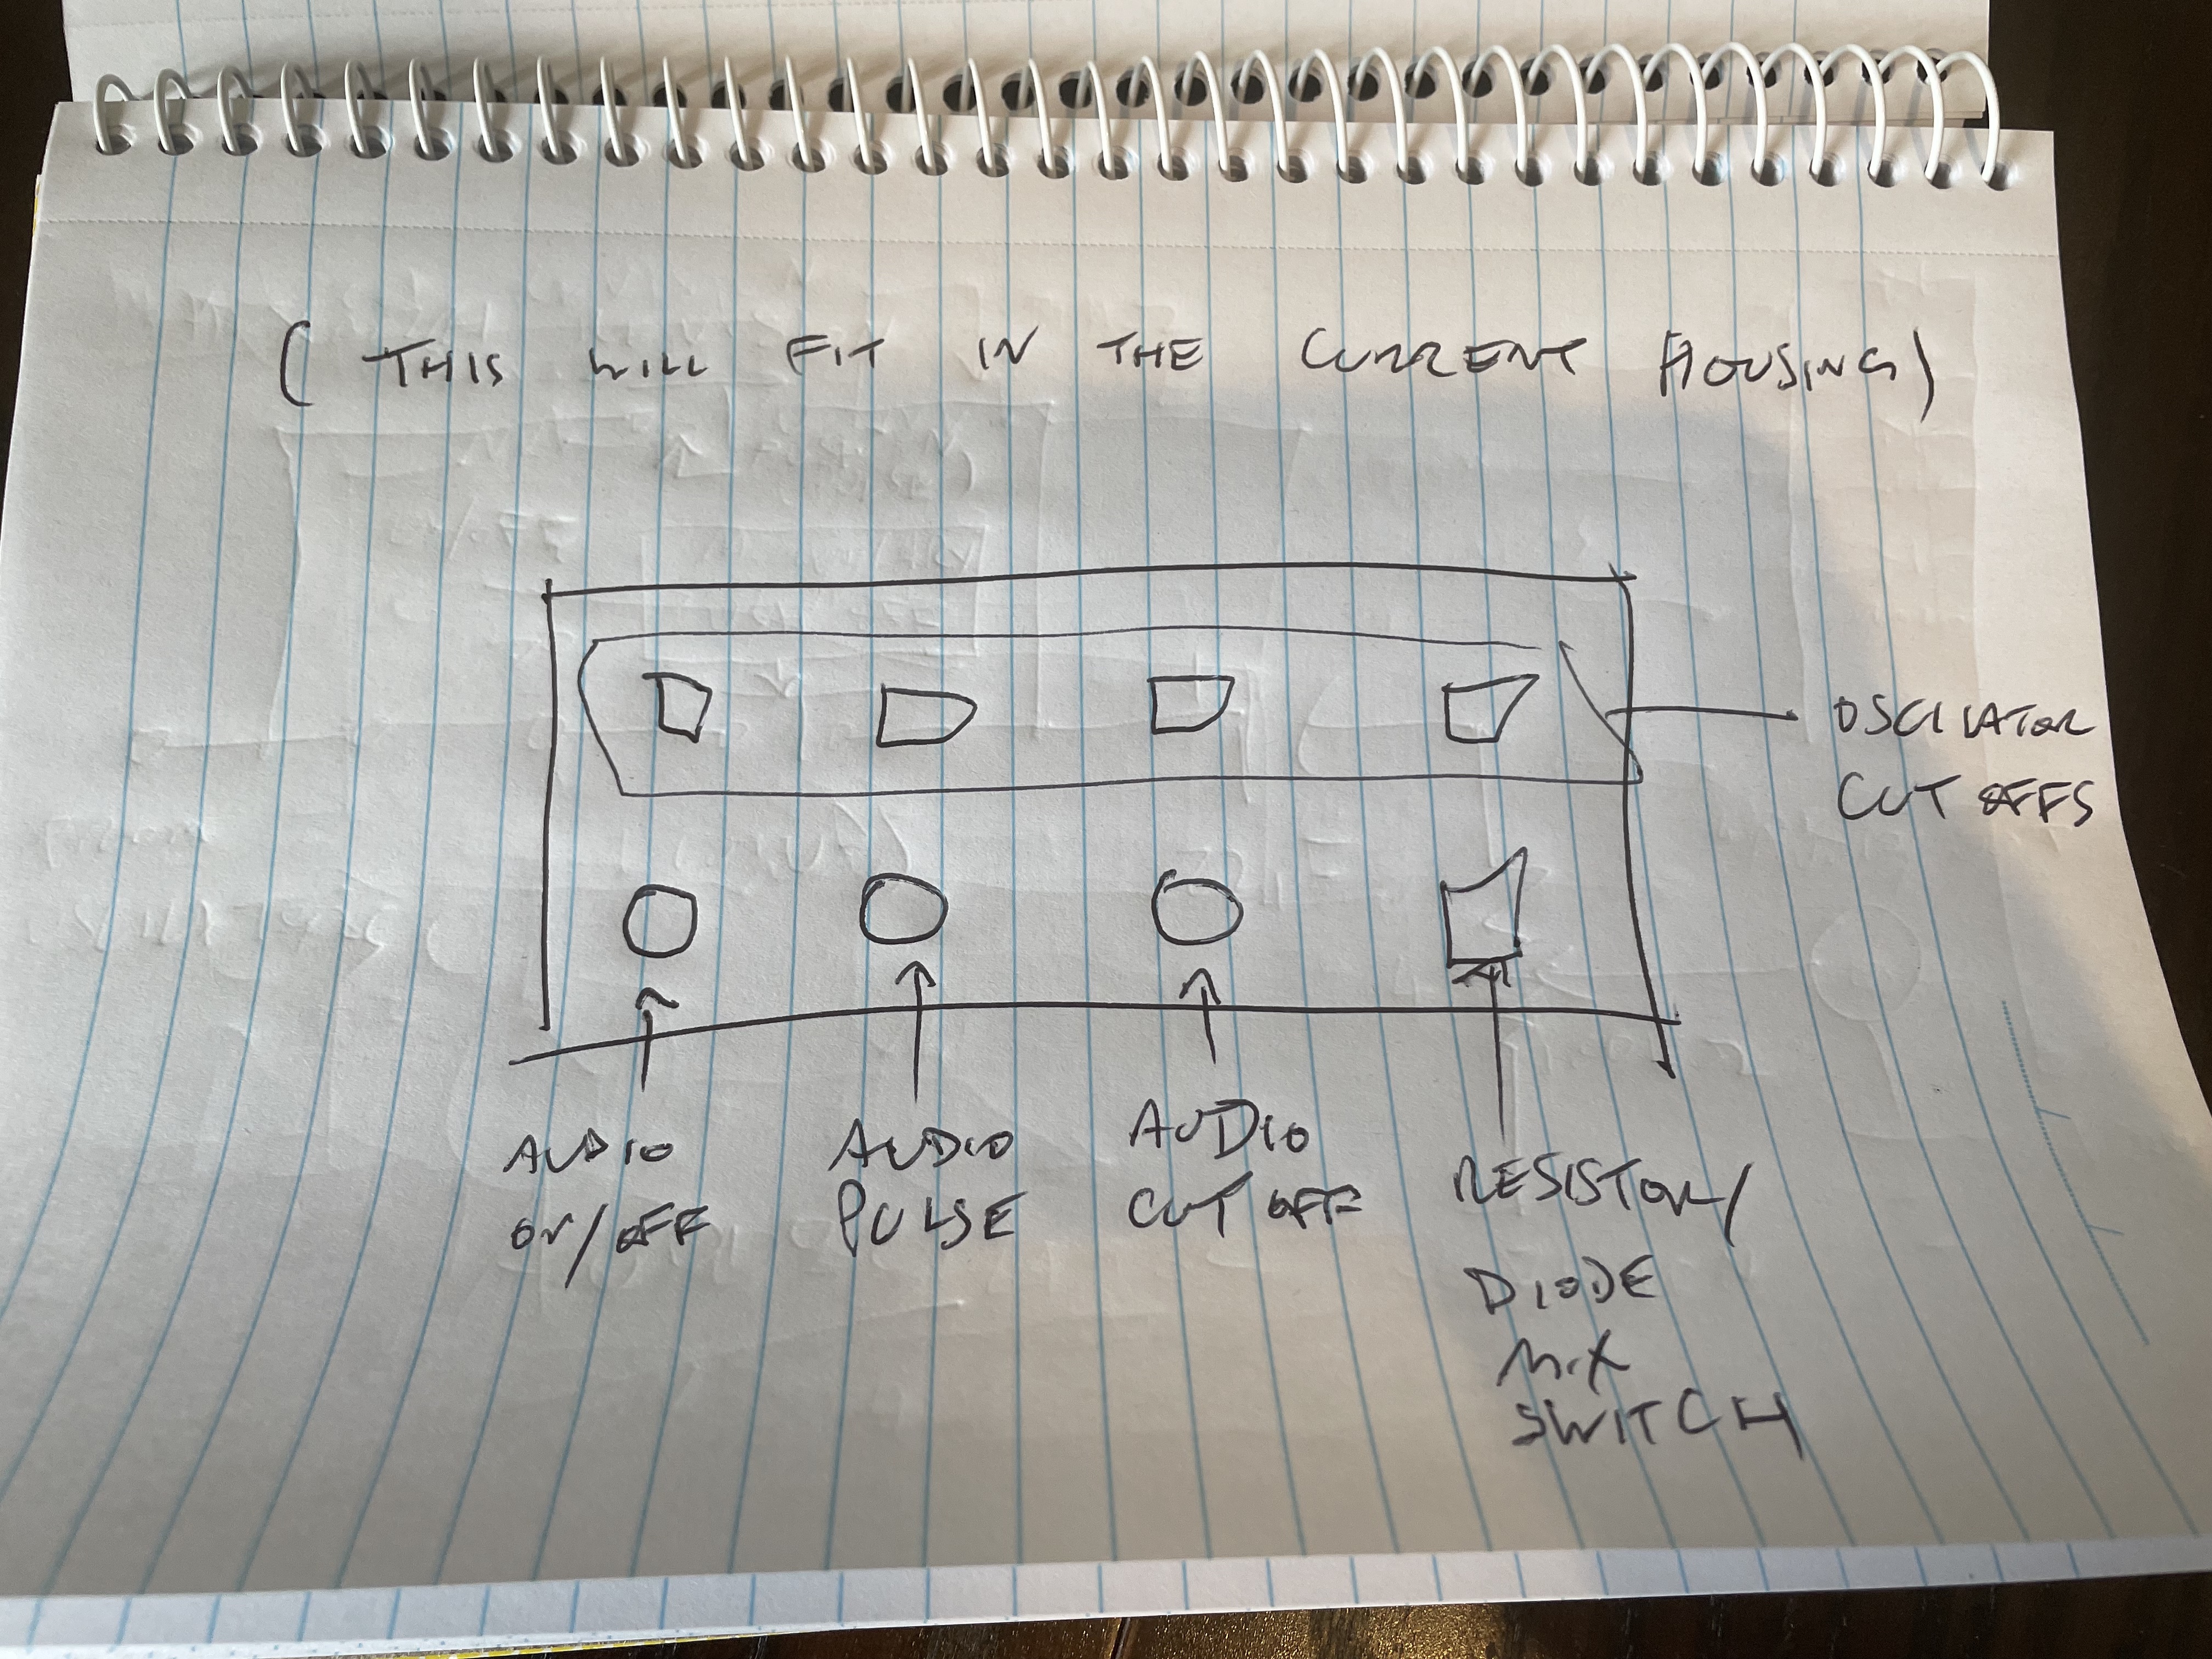 ( THIS WILL FIT IN THE CURRENT HOUSING)
OSCILATOR
CUT OFFS
AUDIO
ON/OFF
AUDIO
PULSE
AUDIO
CUT OFF
RESISTOR/
DIODE
MIX
SWITCH